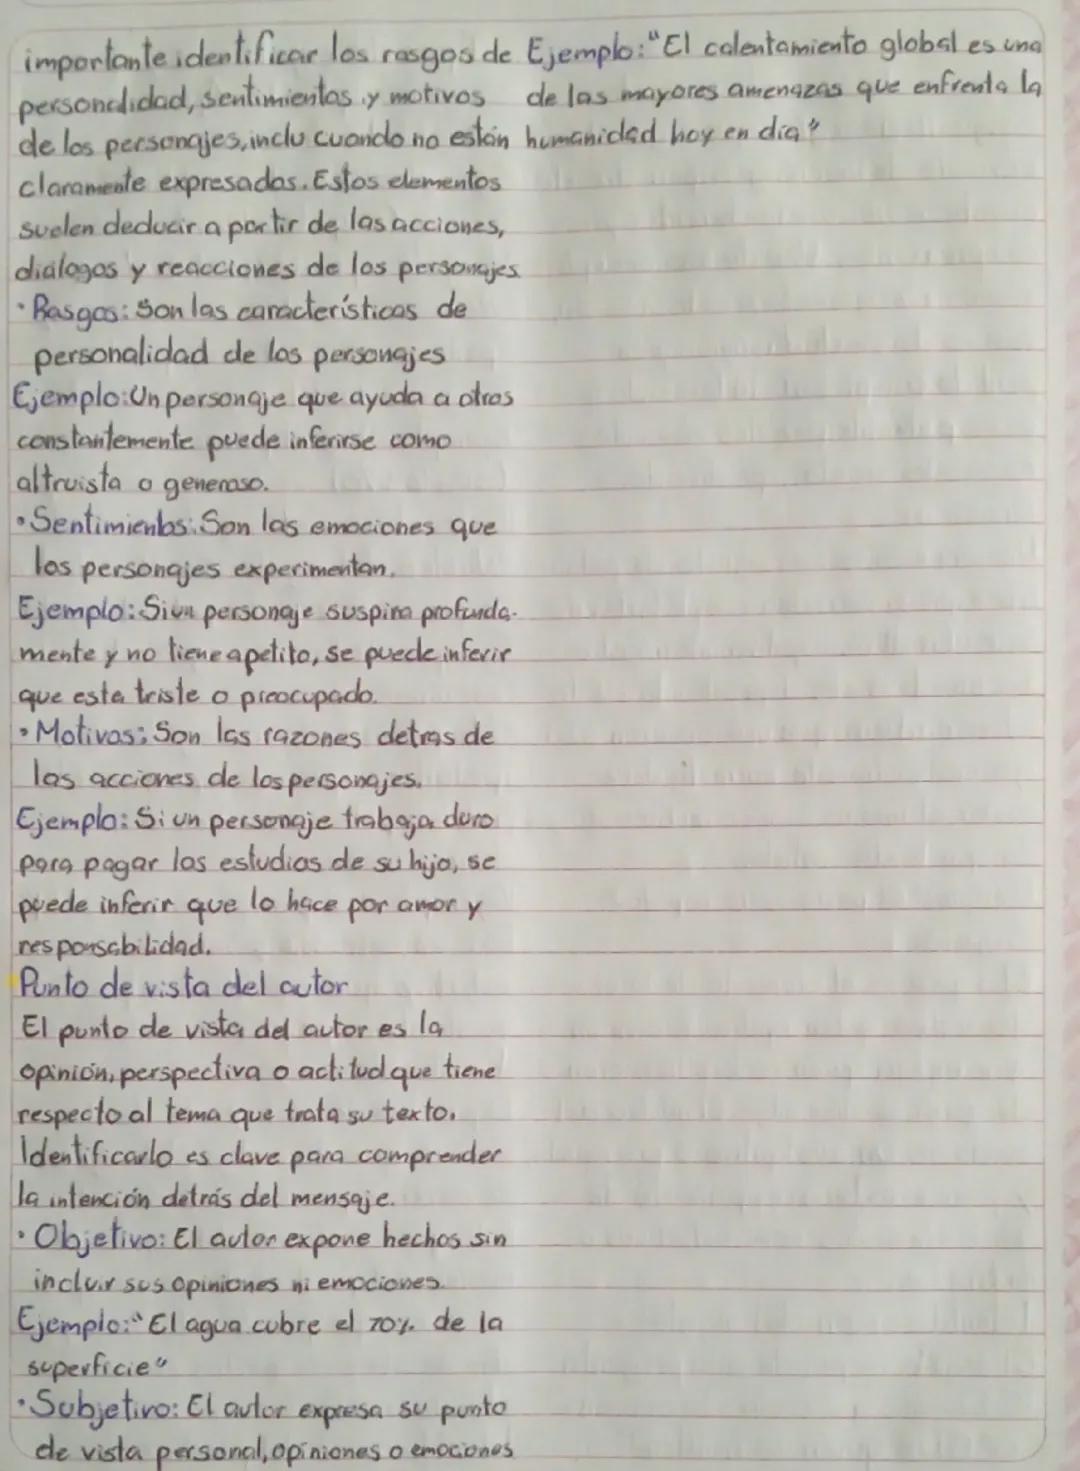 importante identificar los rasgos de
personalidad, sentimientos y motivos
de los personajes, inclu cuando no están
claramente expresados. Estos elementos
suelen deducir a partir de las acciones,
diálogos y reacciones de los personajes
· Rasgos: Son las características de
personalidad de los personajes
Ejemplo: Un personaje que ayuda a otros
constantemente puede inferirse como
altruista o generoso.
· Sentimientos: Son las emociones que
los personajes experimentan.
Ejemplo: Si un personaje suspira profunda-
mente y no tiene apetito, se puede inferir
que esta triste o preocupado.
· Motivos: Son las razones detras de
las acciones de los personajes.
Ejemplo: Si un personaje trabaja duro
para pagar los estudios de su hijo, se
puede inferir que lo hace por amor y
responsabilidad.
Punto de vista del autor
El punto de vista del autor es la
opinión, perspectiva o actitud que tiene
respecto al tema que trata su texto.
Identificarlo es clave para comprender
la intención detrás del mensaje.
· Objetivo: El autor expone hechos sin
incluir sus opiniones ni emociones.
Ejemplo: "El agua cubre el 70% de la
superficie"
· Subjetivo: El autor expresa su punto
de vista personal, opiniones o emociones
Ejemplo: "El calentamiento global es una
de las mayores amenazas que enfrenta la
humanidad hoy en día"